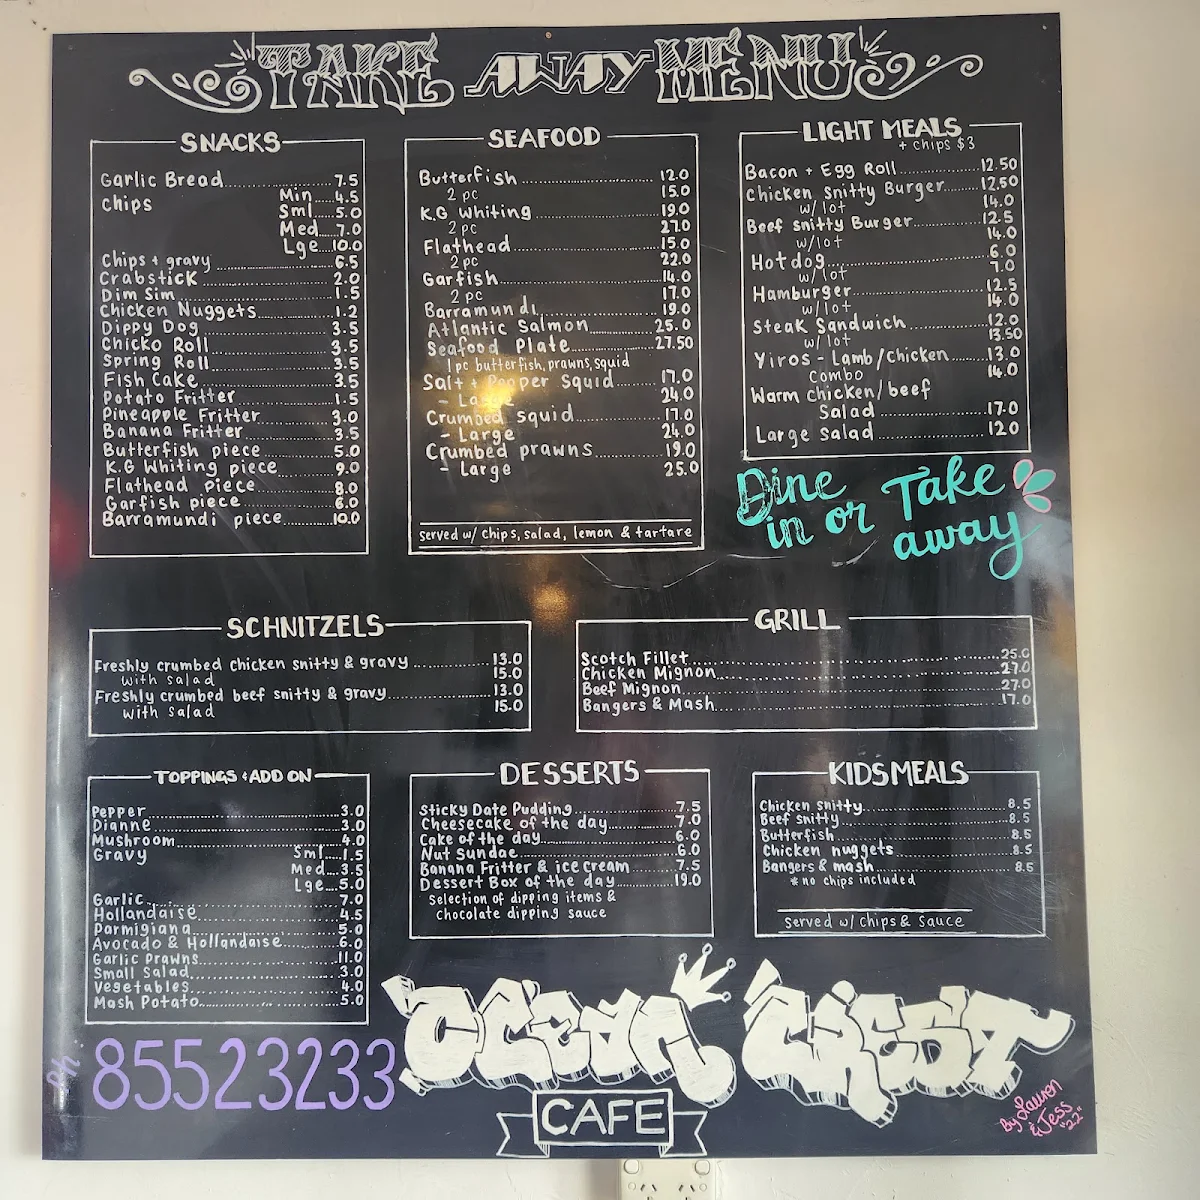 TAKE AWAY MENU
SNACKS
Garlic Bread 7.5
Chips Min 4.5
Sml 5.0
Med 7.0
Lge 10.0
Chips + gravy 6.5
Crabstick 2.0
Dim Sim 1.5
Chicken Nuggets 1.2
Dippy Dog 3.5
Chicko Roll 3.5
Spring Roll 3.5
Fish Cake 3.5
Potato Fritter 1.5
Pineapple Fritter 3.0
Banana Fritter 3.5
Butterfish piece 5.0
K.G Whiting piece 9.0
Flathead piece 8.0
Garfish piece 6.0
Barramundi piece 10.0
SEAFOOD
Butterfish 12.0
2 pc 15.0
K.G Whiting 19.0
2 pc 27.0
Flathead 15.0
2 pc 22.0
Garfish 14.0
2 pc 17.0
Barramundi 19.0
Atlantic Salmon 25.0
Seafood Plate 27.50
1 pc butterfish, prawns, squid
Salt + Pepper Squid 17.0
- Large 24.0
Crumbed squid 17.0
- Large 24.0
Crumbed prawns 19.0
- Large 25.0
served w/ chips, salad, lemon & tartare
LIGHT MEALS
+ chips $3
Bacon + Egg Roll 12.50
Chicken Snitty Burger 12.50
w/lot 14.0
Beef snitty Burger 12.5
w/lot 14.0
Hotdog 6.0
w/lot 7.0
Hamburger 12.5
w/lot 14.0
Steak Sandwich 12.0
w/lot 13.50
Yiros - Lamb/Chicken 13.0
Combo 14.0
Warm chicken/beef
Salad 17.0
Large Salad 12.0
Dine in or Take away
SCHNITZELS
Freshly crumbed chicken snitty & gravy 13.0
with salad 15.0
Freshly crumbed beef snitty & gravy 13.0
with salad 15.0
GRILL
Scotch Fillet 25.0
Chicken Mignon 27.0
Beef Mignon 27.0
Bangers & Mash 17.0
TOPPINGS & ADD ON
Pepper 3.0
Dianne 3.0
Mushroom 4.0
Gravy Sml 1.5
Med 3.5
Lge 5.0
Garlic 7.0
Hollandaise 4.5
Parmigiana 5.0
Avocado & Hollandaise 6.0
Garlic Prawns 11.0
Small Salad 3.0
Vegetables 4.0
Mash Potato 5.0
DESSERTS
Sticky Date Pudding 7.5
Cheesecake of the day 7.0
Cake of the day 6.0
Nut Sundae 6.0
Banana Fritter & ice cream 7.5
Dessert Box of the day 19.0
Selection of dipping items &
chocolate dipping sauce
KIDS MEALS
Chicken snitty 8.5
Beef snitty 8.5
Butterfish 8.5
Chicken nuggets 8.5
Bangers & mash 8.5
* no chips included
served w/ chips & sauce
Ph: 85523233
OCEAN CREST
CAFE
By Lauren
& Jess
"22"